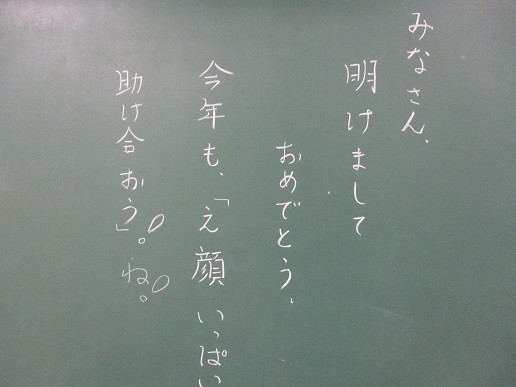 みなさん、
明けまして
おめでとう。
今年も、「え顔いっぱい
助け合おう」。ね。